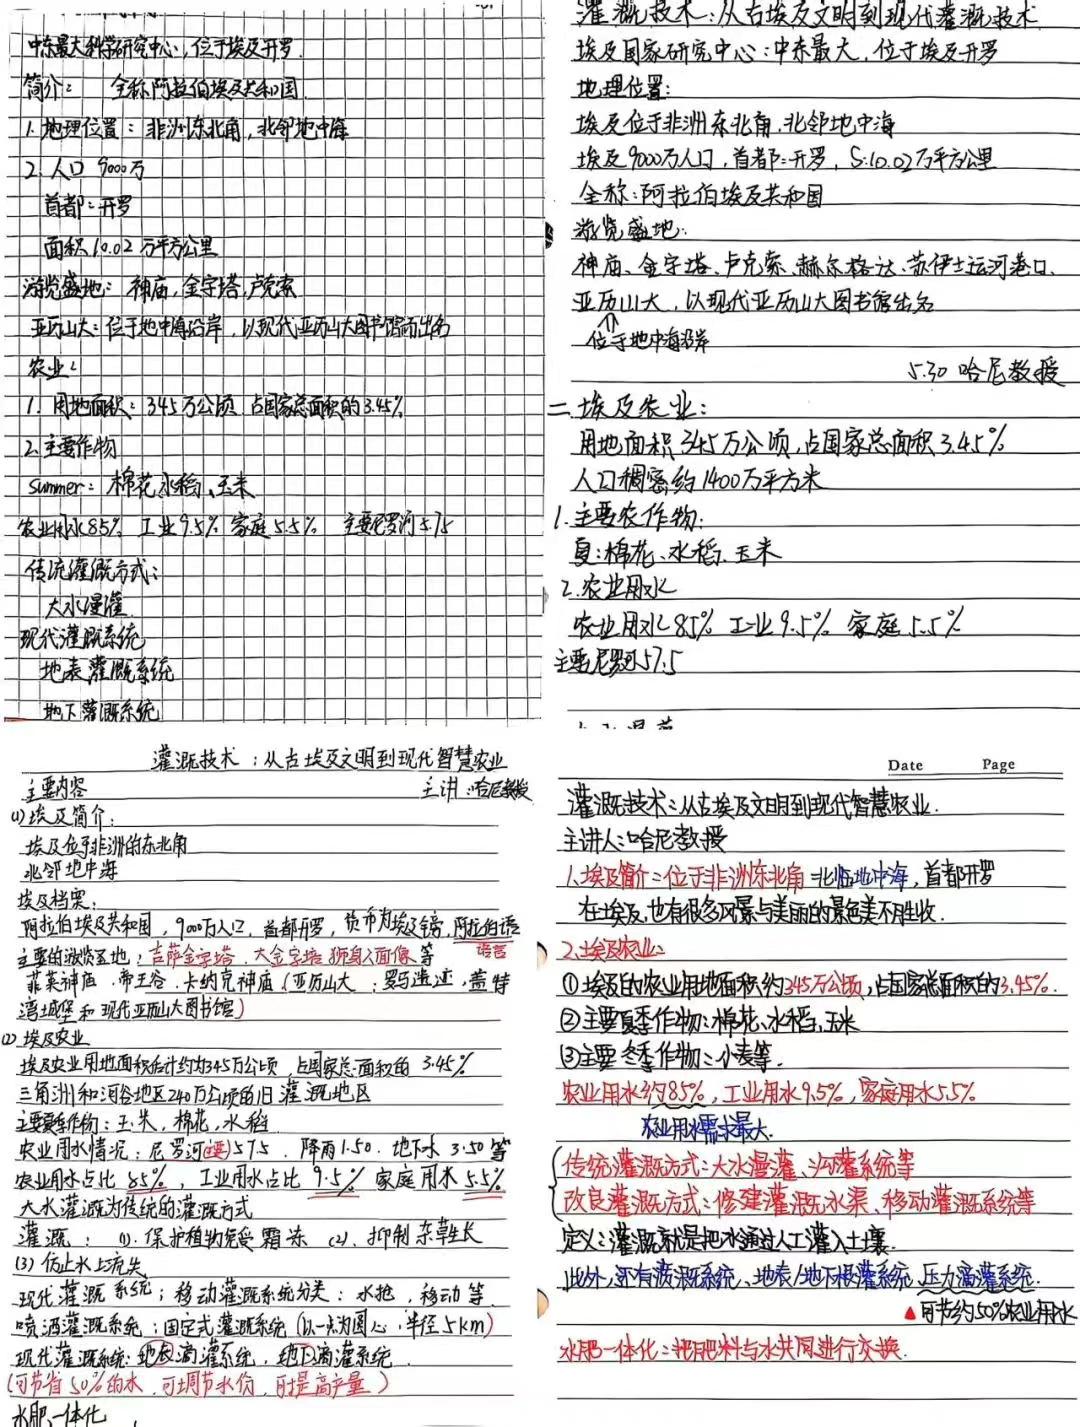 中东最大科学研究中心,位于埃及开罗.
简介: 全称阿拉伯埃及共和国
1. 地理位置: 非洲东北角, 北邻地中海
2. 人口 9000万
首都: 开罗
面积 10.02 万平方公里
游览盛地: 神庙, 金字塔, 卢克索
亚历山大: 位于地中海沿岸, 以现代亚历山大图书馆而出名
农业:
1. 用地面积: 345万公顷 占国家总面积的3.45%
2. 主要作物
summer: 棉花 水稻、玉米
农业用水85% 工业9.5% 家庭5.5% 主要尼罗河 57.5
传统灌溉方式:
大水漫灌
现代灌溉系统
地表灌溉系统
地下灌溉系统
灌溉技术:从古埃及文明到现代灌溉技术
埃及国家研究中心:中东最大,位于埃及开罗
地理位置:
埃及位于非洲东北角,北邻地中海
埃及9000万人口,首都:开罗, S:10.02万平方公里
全称:阿拉伯埃及共和国
游览盛地:
神庙、金字塔、卢克索、赫尔格达、苏伊士运河港口、
亚历山大,以现代亚历山大图书馆出名
位于地中海沿岸
5.30 哈尼教授
二、埃及农业:
用地面积345万公顷,占国家总面积3.45%
人口稠密约1400万平方米
1.主要农作物:
夏:棉花、水稻、玉米
2.农业用水
农业用水85% 工业9.5% 家庭5.5%
主要尼罗河57.5
灌溉技术:从古埃及文明到现代智慧农业
主要内容 主讲:哈尼教授
(1)埃及简介:
埃及位于非洲的东北角
北邻地中海
埃及档案:
阿拉伯埃及共和国,9000万人口,首都开罗,货币为埃及镑,阿拉伯语
语言
主要的游览圣地:吉萨金字塔、大金字塔 狮身人面像等
菲莱神庙、帝王谷、卡纳克神庙(亚历山大:罗马遗迹、盖特
湾城堡和现代亚历山大图书馆)
(2)埃及农业
埃及农业用地面积估计约为345万公顷,占国家总面积的 3.45%
三角洲和河谷地区240万公顷的旧灌溉地区
主要夏季作物:玉米,棉花,水稻
农业用水情况:尼罗河(主要)57.5 、降雨1.50、地下水 3.50等
农业用水占比 85%,工业用水占比 9.5% 家庭用水 5.5%
大水灌溉为传统的灌溉方式
灌溉:(1).保护植物免受霜冻 (2).抑制杂草生长
(3)防止水土流失
现代灌溉系统;移动灌溉系统分类:水枪,移动等
喷洒灌溉系统;固定式灌溉系统(以一点为圆心,半径5km)
现代灌溉系统:地表滴灌系统,地下滴灌系统.
(可节省50%的水,可调节水份,可提高产量)
水肥一体化
Date Page
灌溉技术:从古埃及文明到现代智慧农业.
主讲人:哈尼教授
1.埃及简介:位于非洲东北角 北临地中海,首都开罗
在埃及也有很多风景与美丽的景色美不胜收.
2.埃及农业:
①埃及的农业用地面积约345万公顷,占国家总面积的3.45%.
②主要夏季作物:棉花、水稻、玉米
③主要冬季作物:小麦等.
农业用水约85%,工业用水9.5%,家庭用水5.5%
农业用水需求最大.
传统灌溉方式:大水漫灌、沟灌系统等
改良灌溉方式:修建灌溉水渠、移动灌溉系统等
定义:灌溉就是把水通过人工灌入土壤.
此外,还有滴溉系统、地表/地下根灌系统 压力滴灌系统.
▲可节约50%农业用水
水肥一体化:把肥料与水共同进行交换.